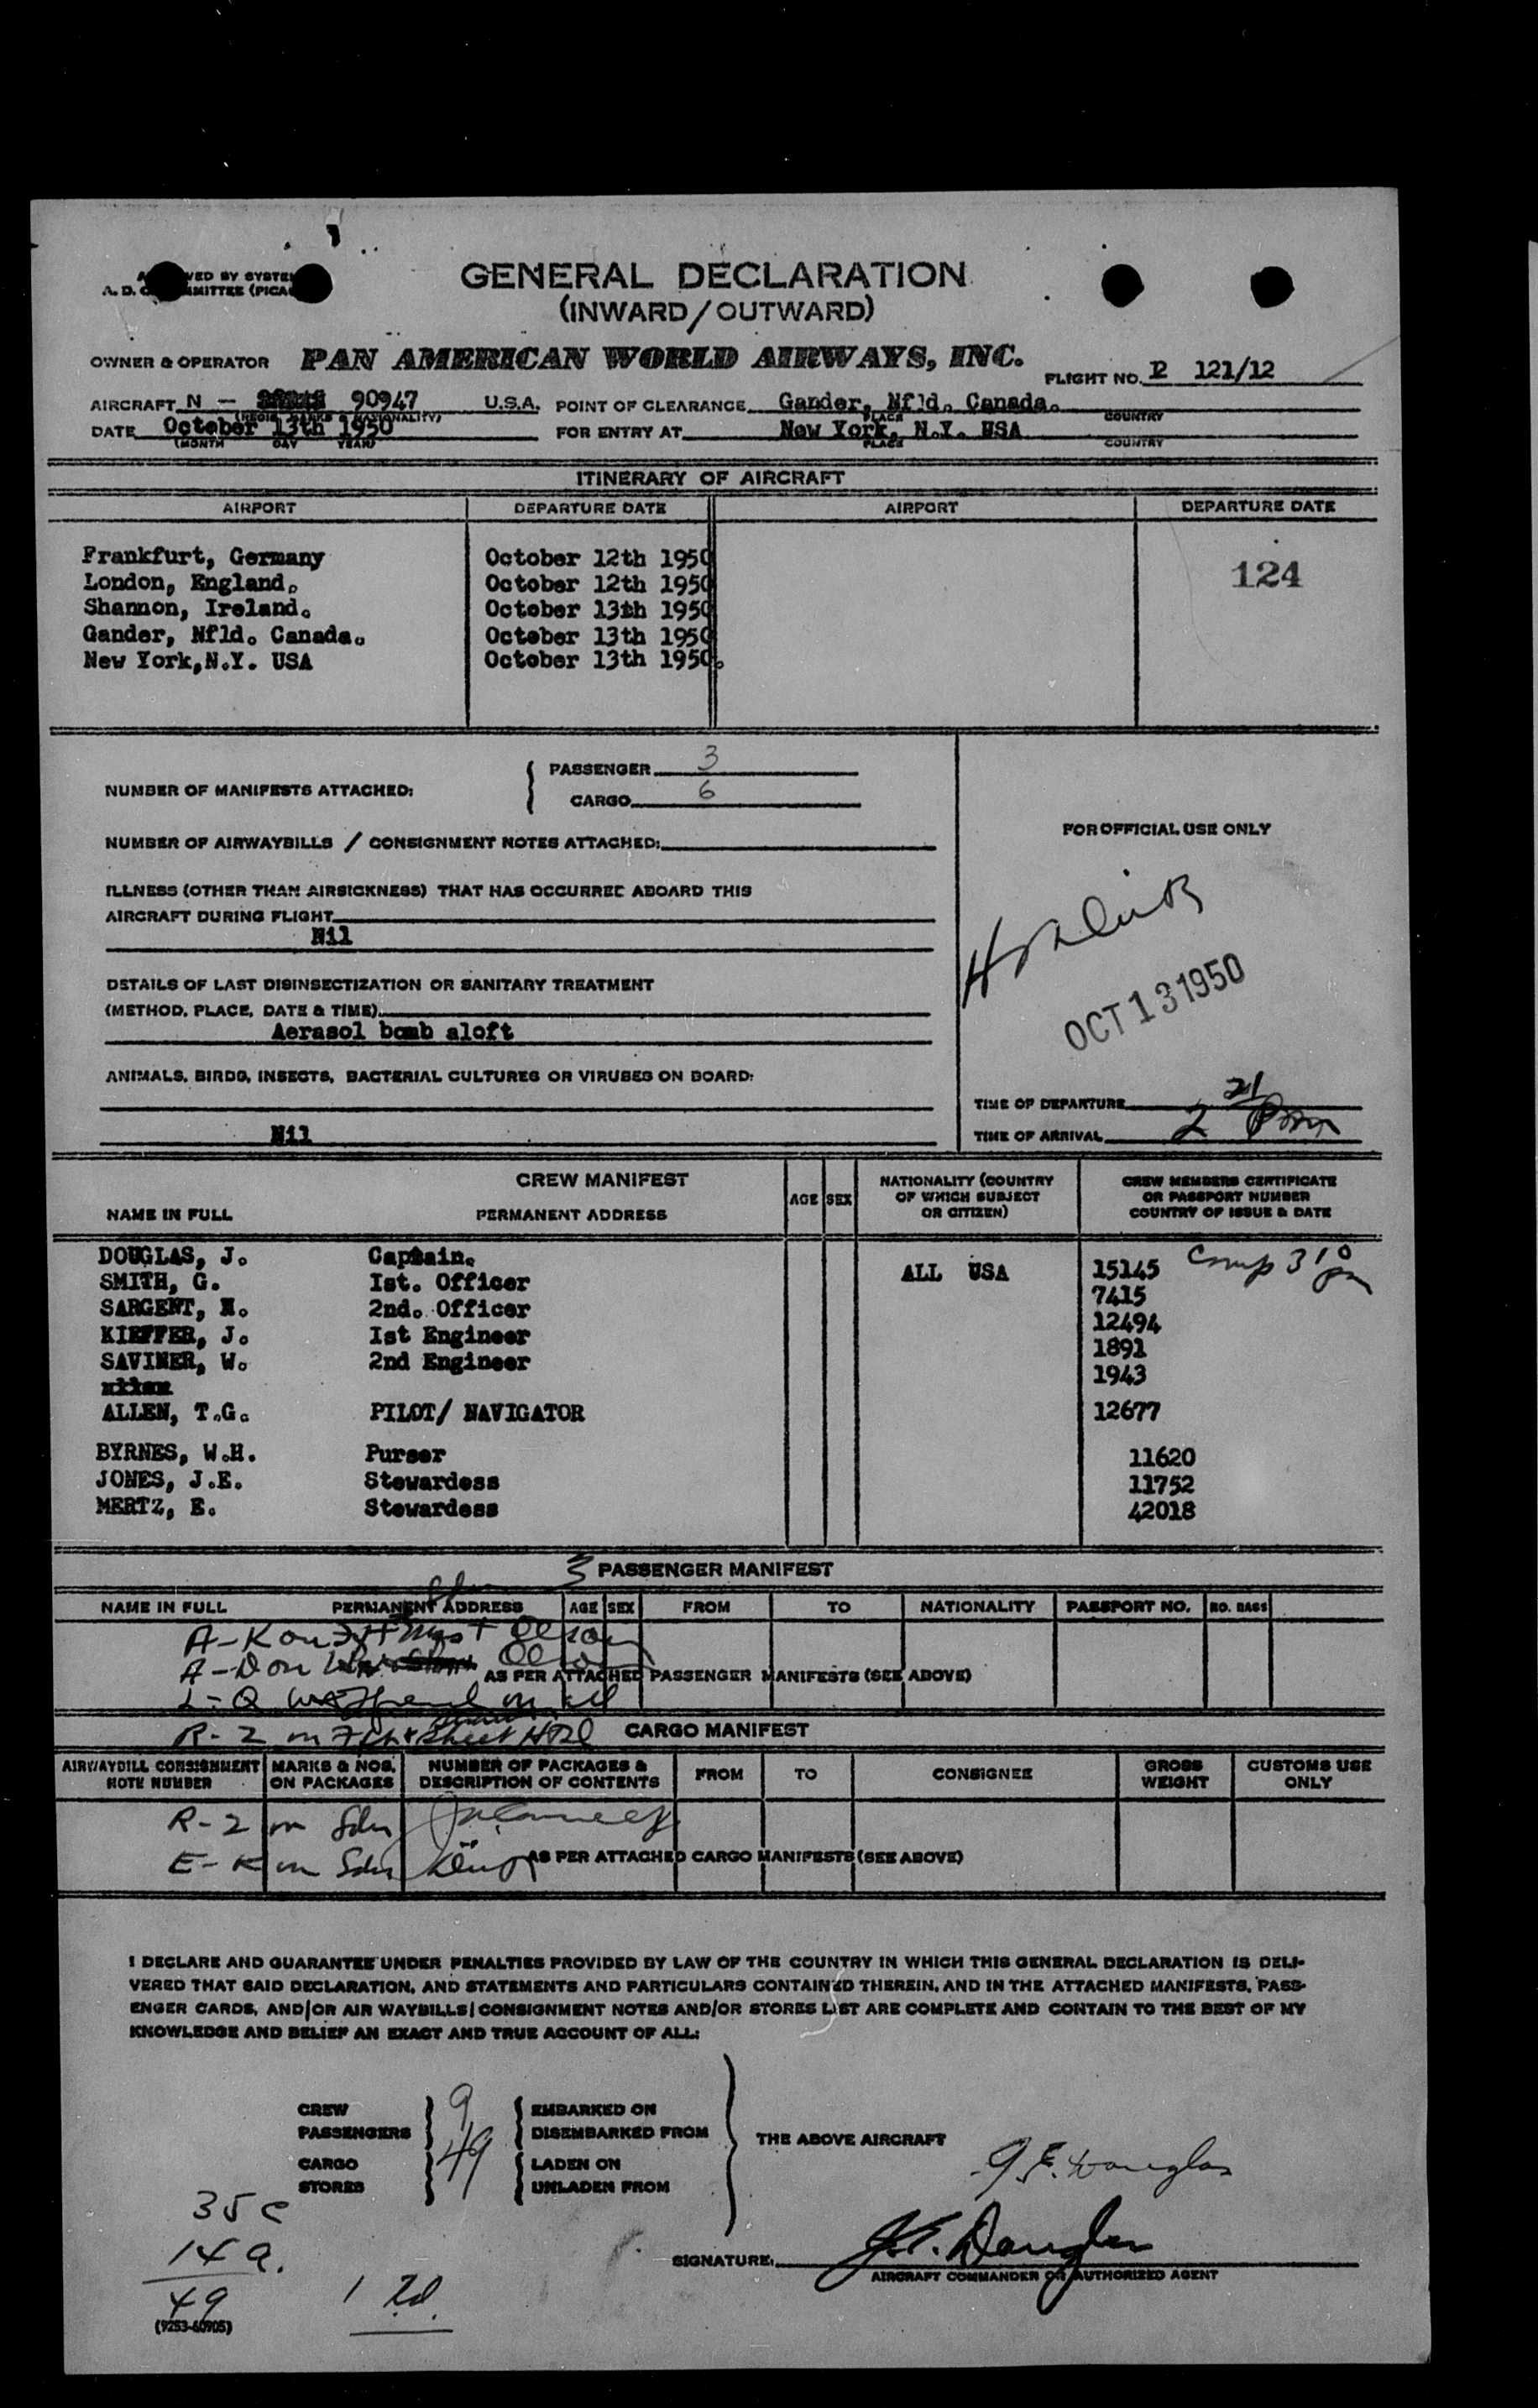 GENERAL DECLARATION
(INWARD/OUTWARD)
OWNER & OPERATOR PAN AMERICAN WORLD AIRWAYS, INC. FLIGHT NO. P 121/12
AIRCRAFT N - 90947 U.S.A. POINT OF CLEARANCE Gander, Nfld. Canada.
(REGIS. MARKS & NATIONALITY) PLACE COUNTRY
DATE October 13th 1950 FOR ENTRY AT New York, N.Y. USA
(MONTH DAY YEAR) PLACE COUNTRY
ITINERARY OF AIRCRAFT
AIRPORT DEPARTURE DATE AIRPORT DEPARTURE DATE
Frankfurt, Germany October 12th 1950
124
London, England. October 12th 1950
Shannon, Ireland. October 13th 1950
Gander, Nfld. Canada. October 13th 1950
New York,N.Y. USA October 13th 1950.
NUMBER OF MANIFESTS ATTACHED: PASSENGER 3
CARGO 6
FOR OFFICIAL USE ONLY
NUMBER OF AIRWAYBILLS / CONSIGNMENT NOTES ATTACHED:
ILLNESS (OTHER THAN AIRSICKNESS) THAT HAS OCCURRED ABOARD THIS
AIRCRAFT DURING FLIGHT
Nil
DETAILS OF LAST DISINSECTIZATION OR SANITARY TREATMENT
(METHOD, PLACE, DATE & TIME)
OCT 13 1950
Aerasol bomb aloft
ANIMALS, BIRDS, INSECTS, BACTERIAL CULTURES OR VIRUSES ON BOARD:
TIME OF DEPARTURE
Nil
TIME OF ARRIVAL 2 21 pm
CREW MANIFEST
NAME IN FULL PERMANENT ADDRESS AGE SEX NATIONALITY (COUNTRY OF WHICH SUBJECT OR CITIZEN) CREW MEMBERS CERTIFICATE OR PASSPORT NUMBER COUNTRY OF ISSUE & DATE
DOUGLAS, J. Captain. ALL USA 15145 Comp 3 10 pm
SMITH, G. Ist. Officer 7415
SARGENT, N. 2nd. Officer 12494
KIEFFER, J. Ist Engineer 1891
SAVINER, W. 2nd Engineer 1943
ALLEN, T.G. PILOT/ NAVIGATOR 12677
BYRNES, W.H. Purser 11620
JONES, J.E. Stewardess 11752
MERTZ, E. Stewardess 42018
3 PASSENGER MANIFEST
NAME IN FULL PERMANENT ADDRESS AGE SEX FROM TO NATIONALITY PASSPORT NO. NO. BAGS
AS PER ATTACHED PASSENGER MANIFESTS (SEE ABOVE)
CARGO MANIFEST
AIRWAYBILL CONSIGNMENT NOTE NUMBER MARKS & NOS. ON PACKAGES NUMBER OF PACKAGES & DESCRIPTION OF CONTENTS FROM TO CONSIGNEE GROSS WEIGHT CUSTOMS USE ONLY
R-2 on
E-K on
AS PER ATTACHED CARGO MANIFESTS (SEE ABOVE)
I DECLARE AND GUARANTEE UNDER PENALTIES PROVIDED BY LAW OF THE COUNTRY IN WHICH THIS GENERAL DECLARATION IS DELI-
VERED THAT SAID DECLARATION, AND STATEMENTS AND PARTICULARS CONTAINED THEREIN, AND IN THE ATTACHED MANIFESTS, PASS-
ENGER CARDS, AND/OR AIR WAYBILLS/CONSIGNMENT NOTES AND/OR STORES LIST ARE COMPLETE AND CONTAIN TO THE BEST OF MY
KNOWLEDGE AND BELIEF AN EXACT AND TRUE ACCOUNT OF ALL:
CREW 9 EMBARKED ON
PASSENGERS 49 DISEMBARKED FROM
THE ABOVE AIRCRAFT
CARGO LADEN ON
STORES UNLADEN FROM
J.E. Douglas
35 c
14 a.
49
SIGNATURE: J.E. Douglas
AIRCRAFT COMMANDER OR AUTHORIZED AGENT
(9253-60905)